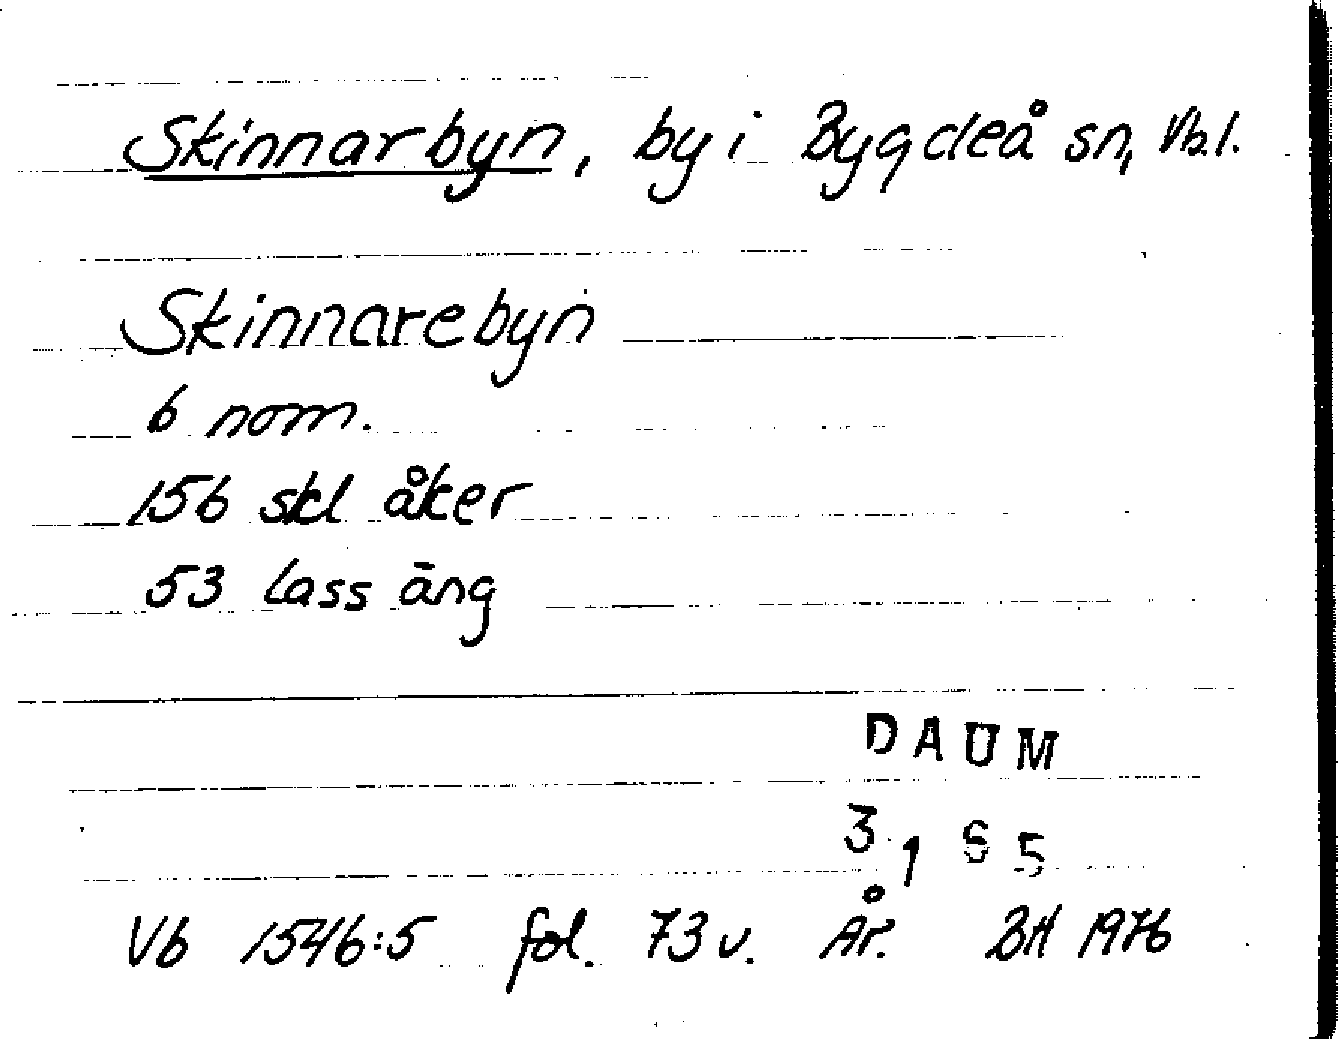 Skinnarbyn, by i Bygdeå sn, Vb.l.
Skinnarebyn
6 nom.
156 skl åker
53 lass äng
DAUM
3165
Vb 1546:5 fol. 73 v. År. BH 1976